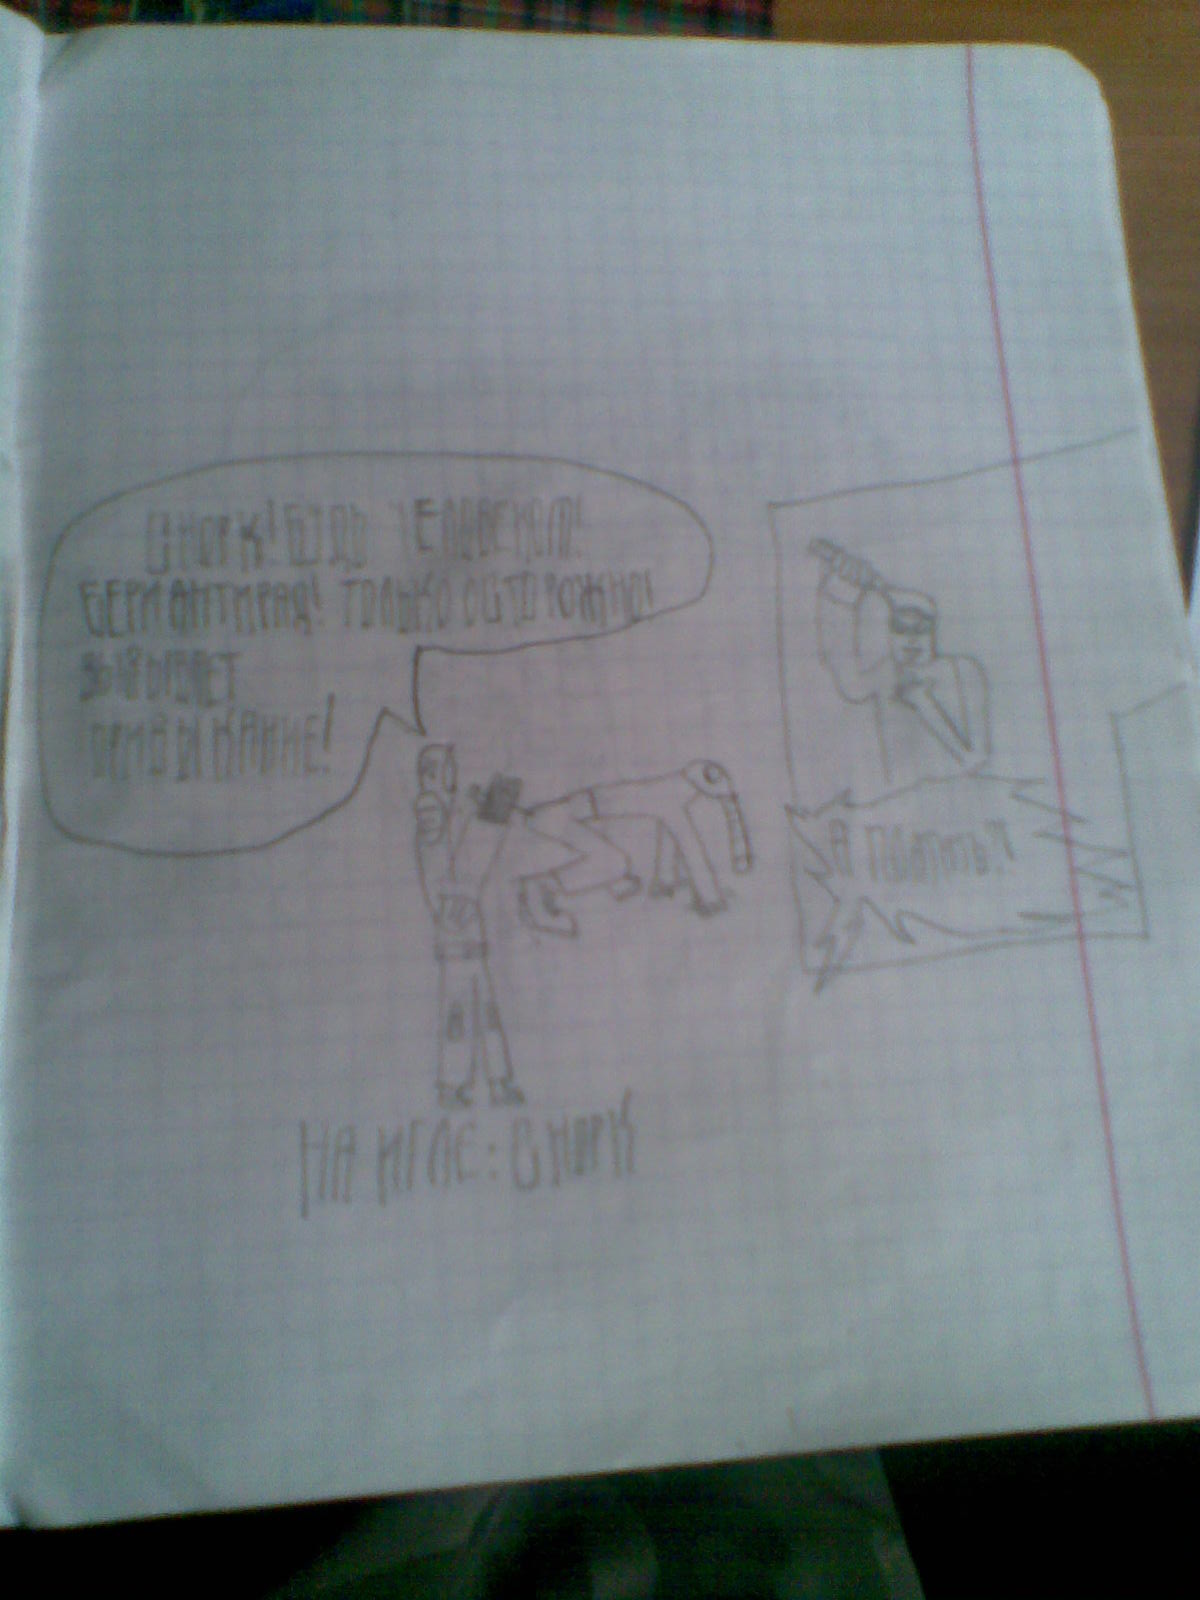 СНОРК! БУДЬ ЧЕЛОВЕКОМ!
БЕРИ АНТИРАД! ТОЛЬКО ОСТОРОЖНО!
ВЫЗЫВАЕТ
ПРИВЫКАНИЕ!
А
НА ИГЛЕ: СНОРК